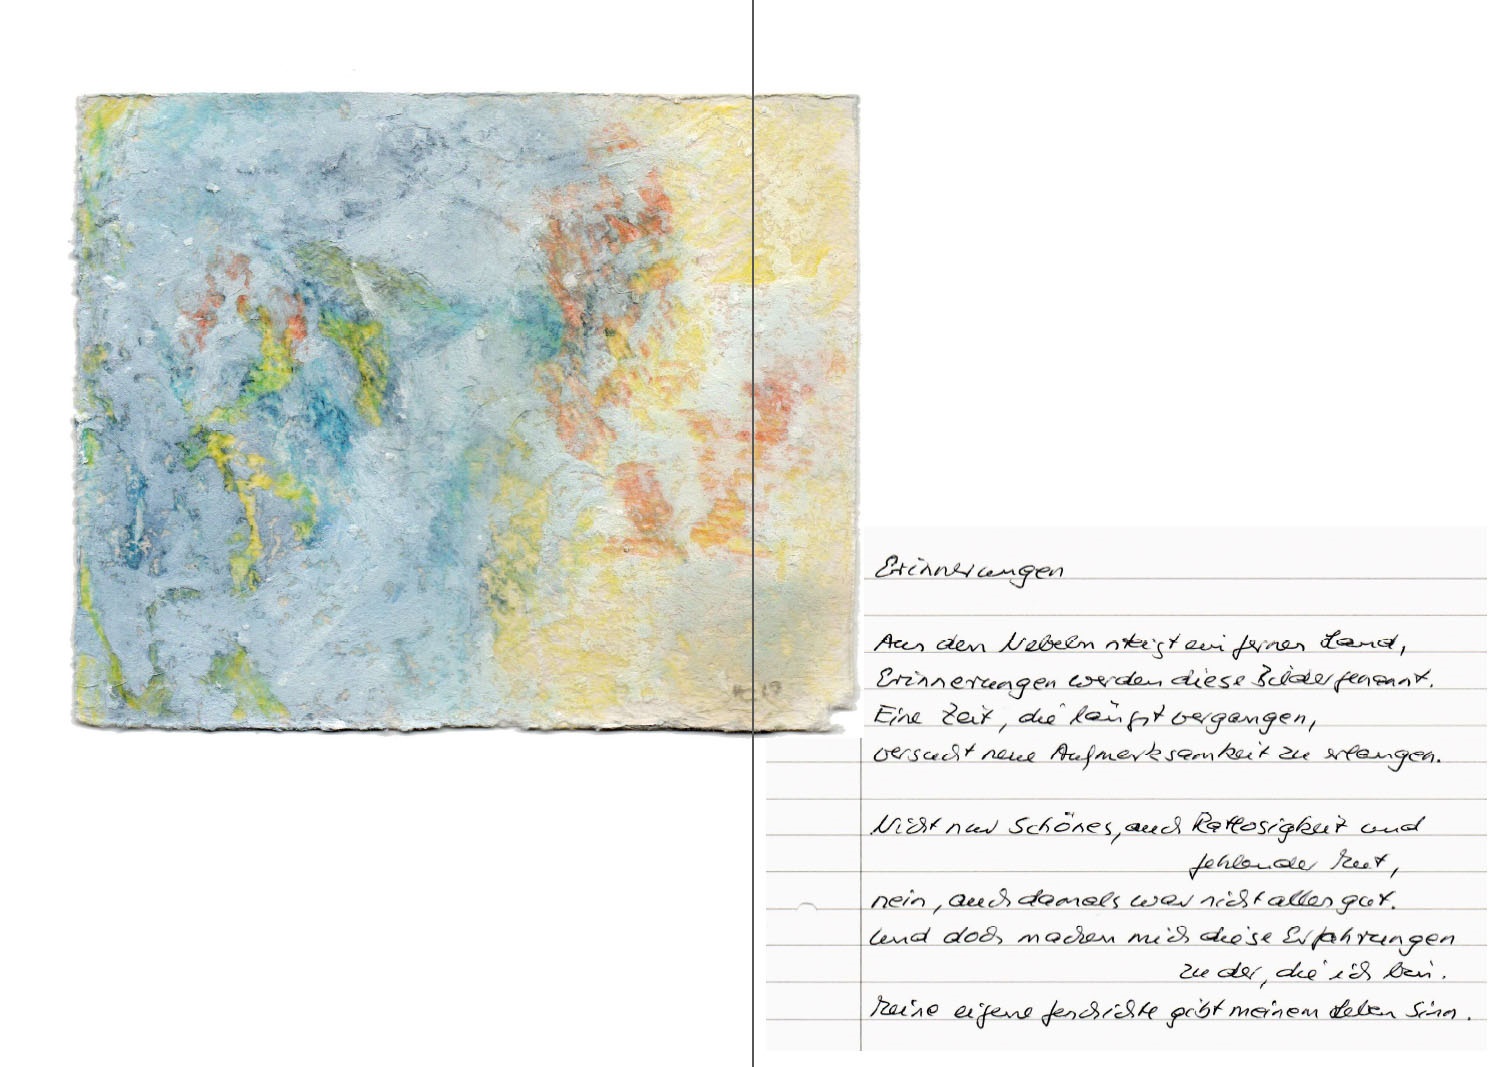 Erinnerungen
Aus den Nebeln steigt ein fernes Land,
Erinnerungen werden diese Bilder genannt.
Eine Zeit, die längst vergangen,
versucht neue Aufmerksamkeit zu erlangen.
Nicht nur Schönes, auch Ratlosigkeit und
fehlender Mut,
nein, auch damals war nicht alles gut.
Und doch machen mich diese Erfahrungen
zu der, die ich bin.
Meine eigene Geschichte gibt meinem Leben Sinn.